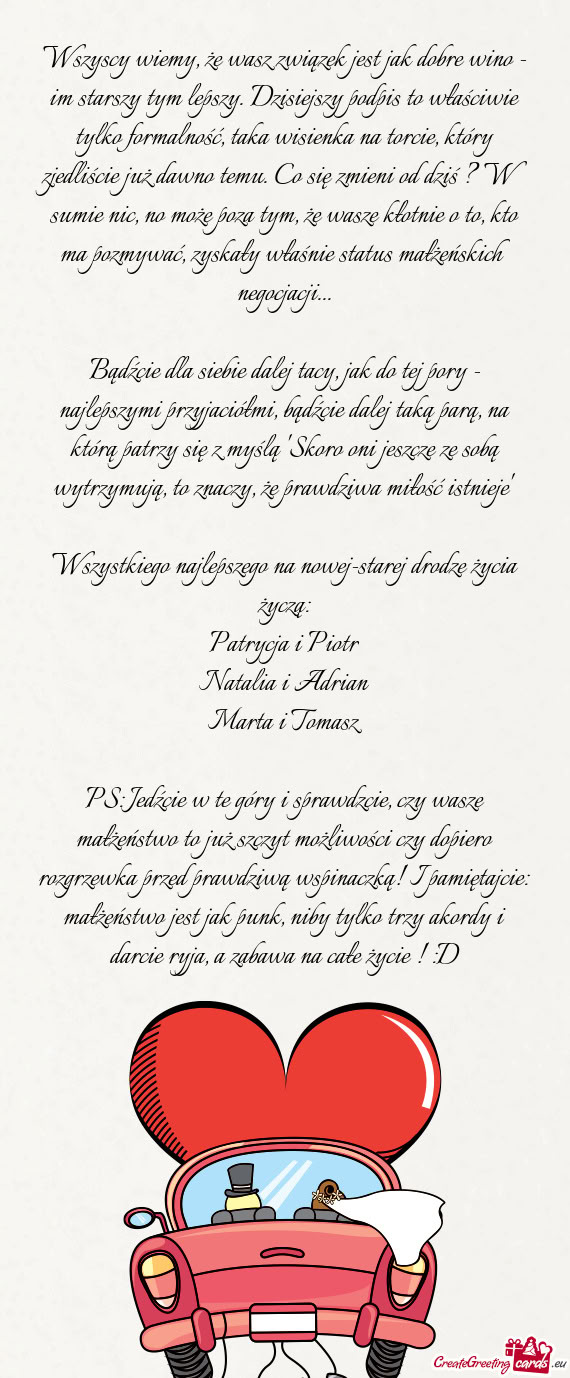 Wszyscy wiemy, że wasz związek jest jak dobre wino -
im starszy tym lepszy. Dzisiejszy podpis to właściwie
tylko formalność, taka wisienka na torcie, który
zjedliście już dawno temu. Co się zmieni od dziś ? W
sumie nic, no może poza tym, że wasze kłotnie o to, kto
ma pozmywać, zyskały właśnie status małżeńskich
negocjacji...
Bądźcie dla siebie dalej tacy, jak do tej pory -
najlepszymi przyjaciółmi, bądźcie dalej taką parą, na
którą patrzy się z myślą 'Skoro oni jeszcze ze sobą
wytrzymują, to znaczy, że prawdziwa miłość istnieje'
Wszystkiego najlepszego na nowej-starej drodze życia
życzą:
Patrycja i Piotr
Natalia i Adrian
Marta i Tomasz
PS: Jedźcie w te góry i sprawdzcie, czy wasze
małżeństwo to już szczyt możliwości czy dopiero
rozgrzewka przed prawdziwą wspinaczką! I pamiętajcie:
małżeństwo jest jak punk, niby tylko trzy akordy i
darcie ryja, a zabawa na całe życie ! :D
CreateGreeting cards .eu